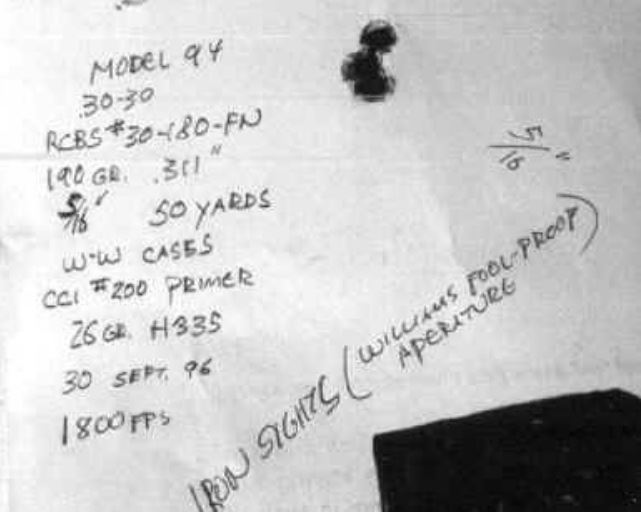 MODEL 94
.30-30
RCBS #30-180-FN
190 GR. .311"
5/16" 50 YARDS
W-W CASES
CCI #200 PRIMER
26 GR. H335
30 SEPT. 96
1800 FPS
5/16"
IRON SIGHTS (WILLIAMS FOOL-PROOF
APERATURE)